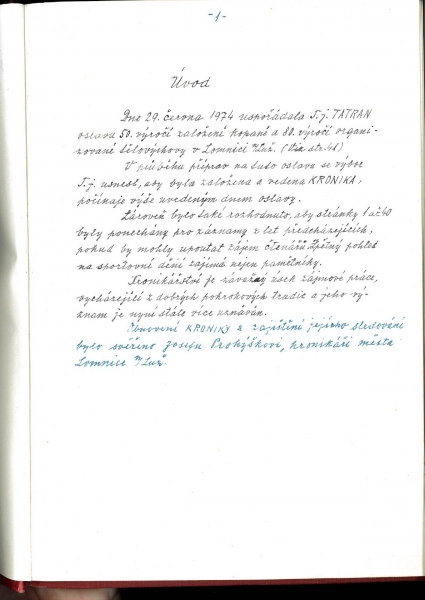 -1-
Úvod
Dne 29. června 1974 uspořádala T.j. TATRAN
oslavu 50. výročí založení kopané a 80. výročí organi-
zované tělovýchovy v Lomnici n/Luž. (Viz str. 41)
V průběhu příprav na tuto oslavu se výbor
T.j. usnesl, aby byla založena a vedena KRONIKA,
počínaje výše uvedeným dnem oslavy.
Zároveň bylo také rozhodnuto, aby stránky 1 až 40
byly ponechány pro záznamy z let předcházejících,
pokud by mohly upoutat zájem čtenářů. Zpětný pohled
na sportovní dění zajímá nejen pamětníky.
Kronikářství je závažný úsek zájmové práce,
vycházející z dobrých pokrokových tradic a jeho vý-
znam je nyní stále více uznáván.
KRONIKY a zajištění jejího sledování
bylo svěřeno Josefu Prohýškovi, kronikáři města
Lomnice n/Luž.